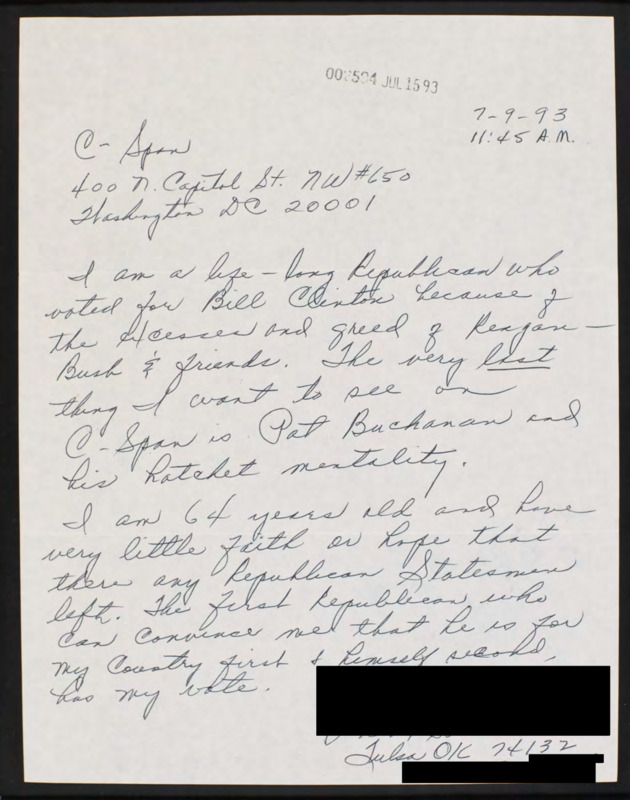 002594 JUL 15 93
7-9-93
11:45 A.M.
C-Span
400 N. Capitol St. NW #650
Washington DC 20001
I am a life-long Republican who
voted for Bill Clinton because of
the excesses and greed of Reagan-
Bush & friends. The very last
thing I want to see on
C-Span is Pat Buchanan and
his hatchet mentality.
I am 64 years old and have
very little faith or hope that
there any Republican Statesmen
left. The first Republican who
can convince me that he is for
my Country first & himself second,
has my vote.
Tulsa OK 74132